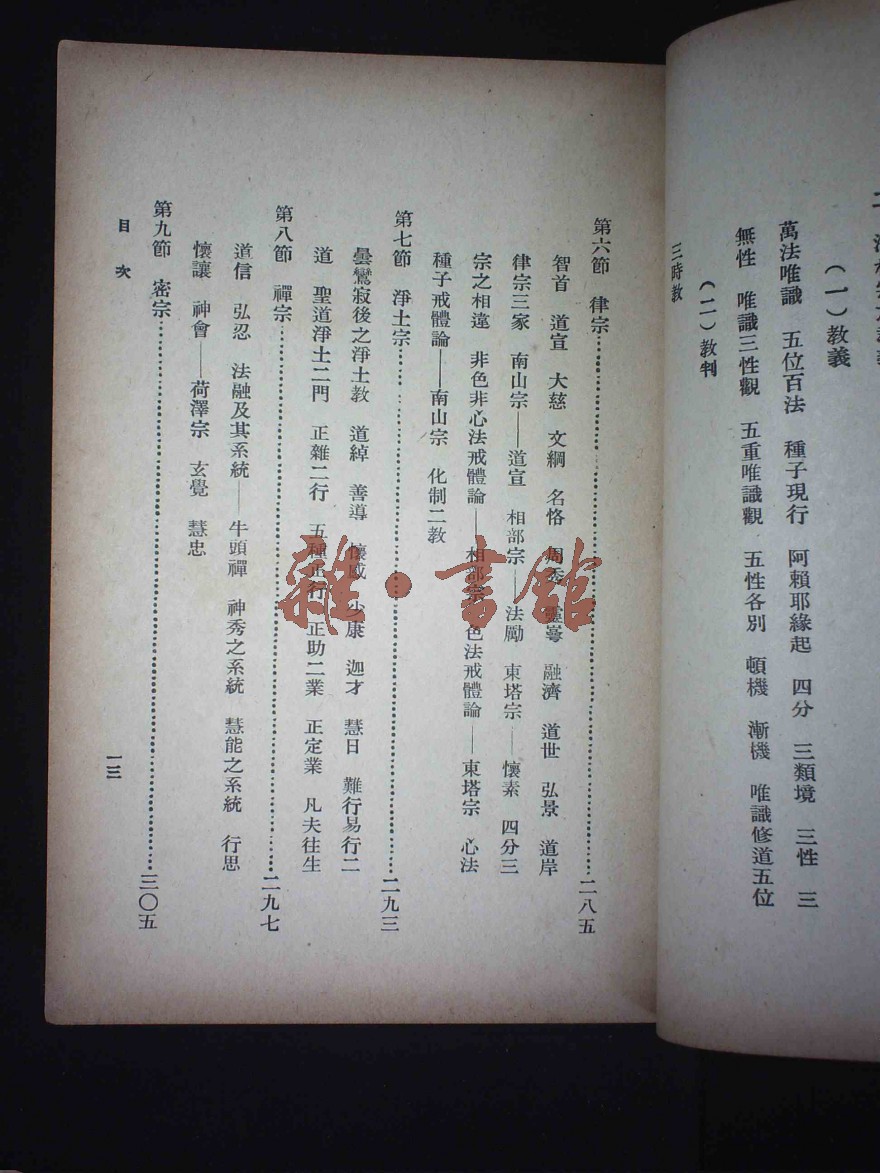 (一)教義
萬法唯識 五位百法 種子現行 阿賴耶緣起 四分 三類境 三性 三
無性 唯識三性觀 五重唯識觀 五性各別 頓機 漸機 唯識修道五位
(二)教判
三時教
第六節 律宗……二八五
智首 道宣 大慈 文綱 名恪 周秀 靈崿 融濟 道世 弘景 道岸
律宗三家 南山宗——道宣 相部宗——法勵 東塔宗——懷素 四分三
宗之相違 非色非心法戒體論——相部宗 色法戒體論——東塔宗 心法
種子戒體論——南山宗 化制二教
第七節 淨土宗……二九三
曇鸞寂後之淨土教 道綽 善導 懷感 少康 迦才 慧日 難行易行二
道 聖道淨土二門 正雜二行 五種正行 正助二業 正定業 凡夫往生
第八節 禪宗……二九七
道信 弘忍 法融及其系統——牛頭禪 神秀之系統 慧能之系統 行思
懷讓 神會——荷澤宗 玄覺 慧忠
第九節 密宗……三〇五
目次
一三
雜·書館